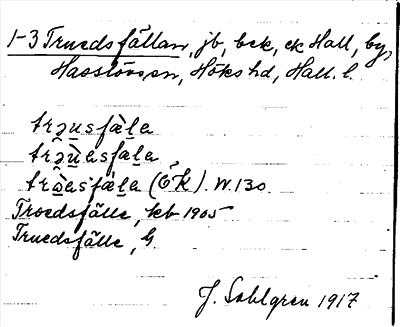 1-3 Truedsfällan, jb, bek, ek Hall, by,
Hasslövsn, Höks hd, Hall. l.
trə̯usfàl̯a
trə̯ùasfal̯a
trə̯̀asfal̯a (ÖK). W.130.
Troedsfälle, kb 1905
Truedsfälle, G
J. Sahlgren 1917